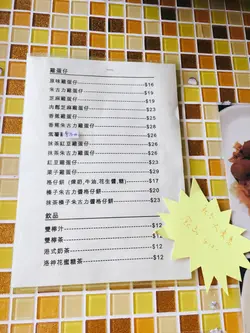 雞蛋仔
原味雞蛋仔 $16
朱古力雞蛋仔 $19
芝麻雞蛋仔 $19
肉鬆芝麻雞蛋仔 $23
香蕉雞蛋仔 $20
香蕉朱古力雞蛋仔 $23
抹茶紅豆雞蛋仔 $29
抹茶朱古力雞蛋仔 $26
紅豆雞蛋仔 $23
栗子雞蛋仔 $29
格仔餅 (煉奶,牛油,花生醬,糖) $17
榛子朱古力醬格仔餅 $20
抹茶榛子朱古力醬格仔餅 $23
飲品
雙檸汁 $12
雙檸茶 $12
港式奶茶 $12
洛神花蜜糖茶 $12